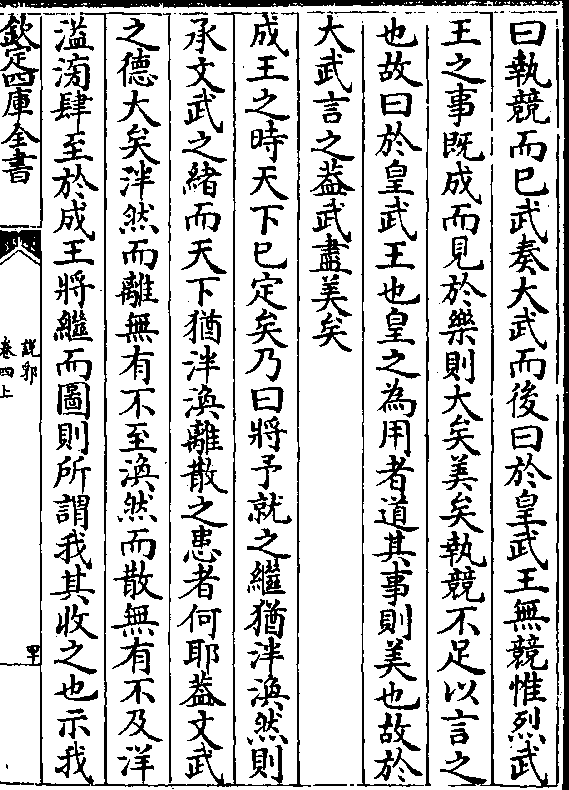 曰執競而已武奏大武而後曰於皇武王無競惟烈武
王之事既成而見於樂則大矣美矣執競不足以言之
也故曰於皇武王也皇之為用者道其事則美也故於
大武言之葢武盡美矣
成王之時天下已定矣乃曰將予就之繼猶泮渙然則
承文武之緒而天下猶泮渙離散之患者何耶葢文武
之德大矣泮然而離無有不至渙然而散無有不及洋
溢滂肆至於成王將繼而圖則所謂我其收之也示我
欽定四庫全書
說郛
卷四上
四十